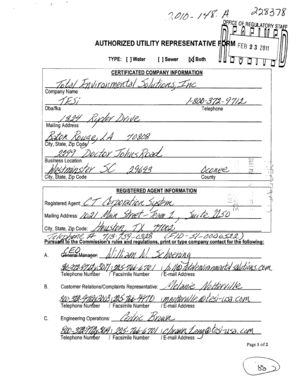 2010-148-A
228378
OFFICE OF REGULATORY STAFF
AUTHORIZED UTILITY REPRESENTATIVE FORM
FEB 23 2011
TYPE: [ ] Water [ ] Sewer [X] Both
CERTIFICATED COMPANY INFORMATION
Total Environmental Solutions, Inc.
Company Name
TESI 1-800-372-9712
Dba/fka Telephone
1824 Ryder Drive
Mailing Address
Baton Rouge, LA 70808
City, State, Zip Code
2299 Doctor Johns Road
Business Location
Westminster SC 29693 Oconee
City, State, Zip Code County
REGISTERED AGENT INFORMATION
Registered Agent: CT Corporation System
Mailing Address: 1021 Main Street - Suite 1150
City, State, Zip Code: Houston, TX 77002
Telephone #
Pursuant to the Commission's rules and regulations, print or type company contact for the following:
CEO
A. General Manager: William W. Schoening
Telephone Number / Facsimile Number / E-mail Address
B. Customer Relations/Complaints Representative: Melanie
Telephone Number / Facsimile Number / E-mail Address
C. Engineering Operations: Cedric Brown
Telephone Number / Facsimile Number / E-mail Address
Page 1 of 2